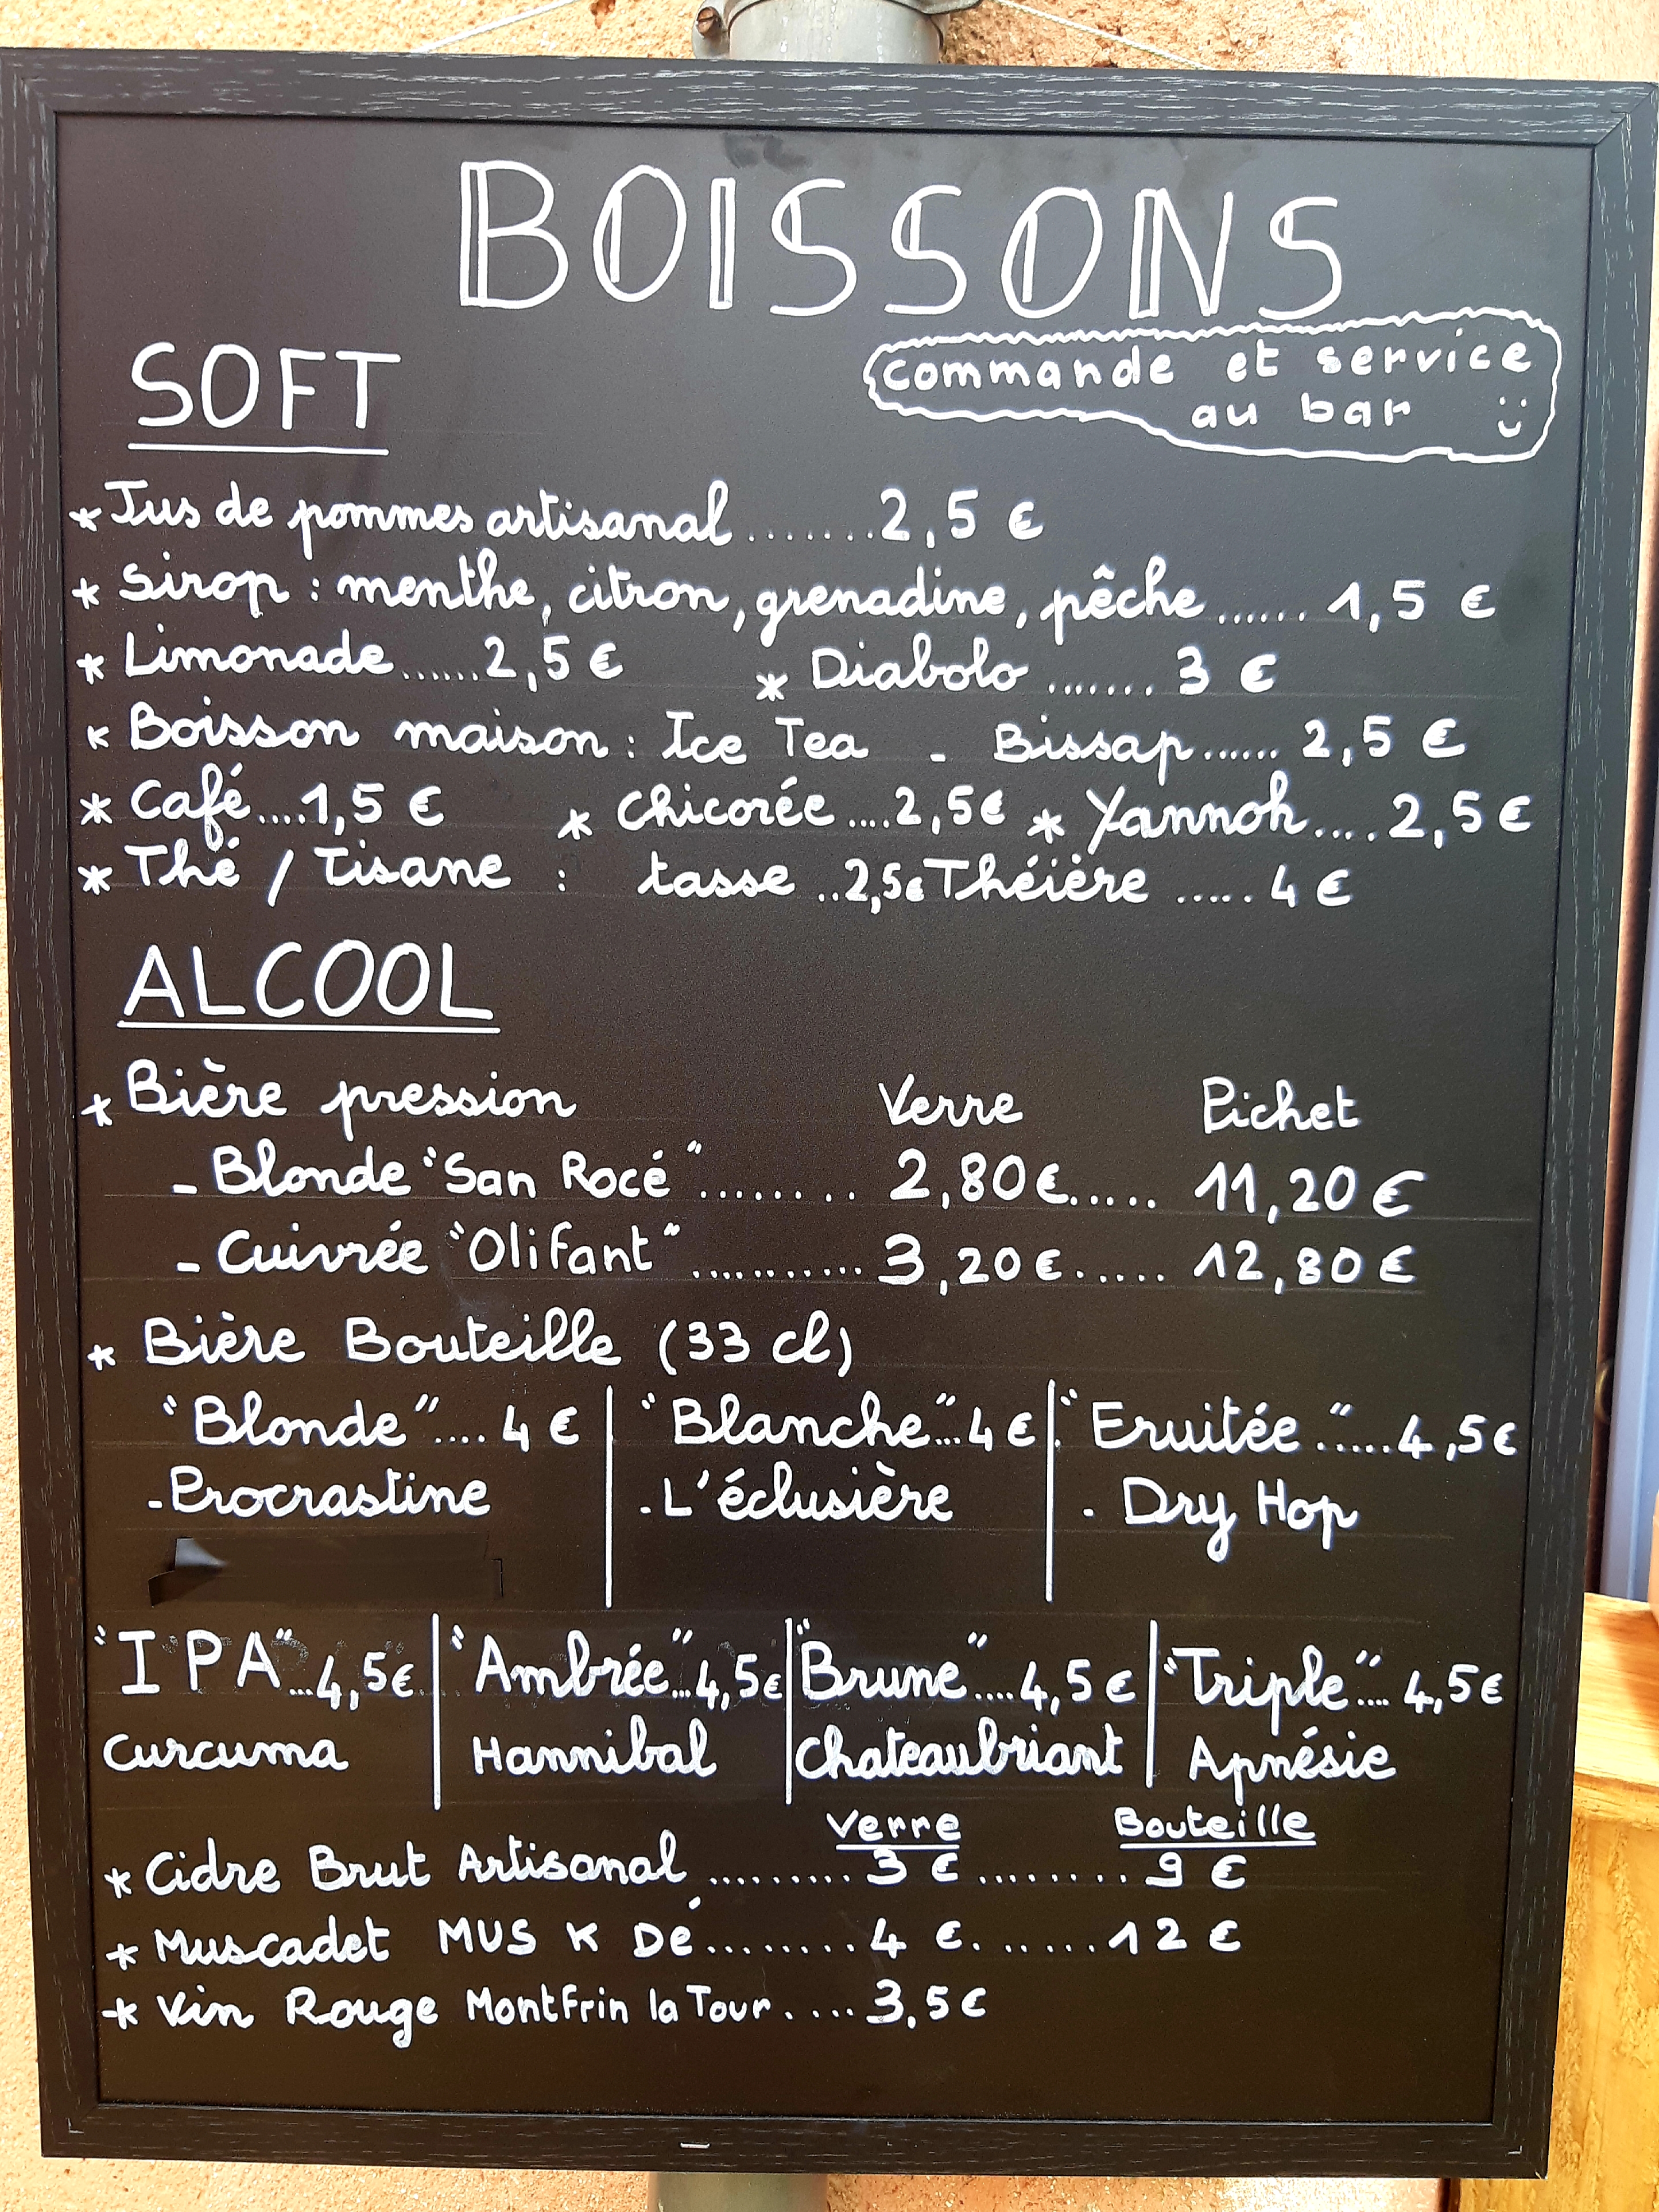 BOISSONS
commande et service
au bar
SOFT
* Jus de pommes artisanal.......2,5 €
* Sirop : menthe, citron, grenadine, pêche...... 1,5 €
* Limonade......2,5 € * Diabolo....... 3 €
* Boisson maison : Ice Tea - Bissap...... 2,5 €
* Café....1,5 € * Chicorée....2,5€ * Yannoh....2,5€
* Thé / Tisane : tasse ..2,5€ Théière ..... 4 €
ALCOOL
* Bière pression Verre Pichet
- Blonde "San Rocé"......... 2,80€..... 11,20 €
- Cuivrée "Olifant"........... 3,20€..... 12,80 €
* Bière Bouteille (33 cl)
"Blonde".... 4 € | "Blanche"...4 € | "Fruitée".....4,5€
-Procrastine | -L'éclusière | - Dry Hop
"IPA"...4,5€ | "Ambrée"...4,5€ | "Brune"....4,5€ | "Triple"....4,5€
Curcuma | Hannibal | Chateaubriant | Apnésie
Verre Bouteille
* Cidre Brut Artisanal......... 3 €........ 9 €
* Muscadet MUS K Dé........4 €.......12 €
* Vin Rouge Montfrin la Tour....3,5€